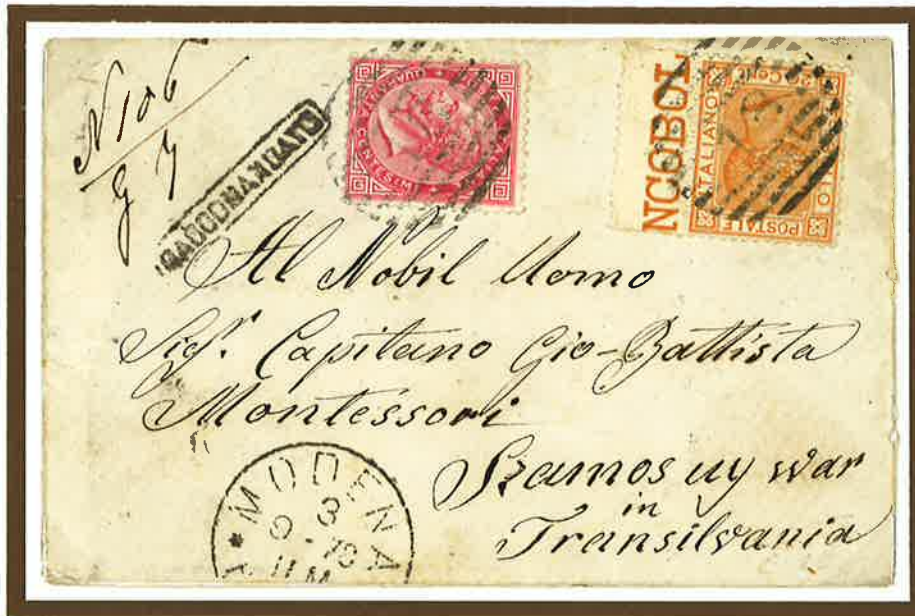 N 106
g 7
RACCOMANDATO
CENTESIMI
NCOBOL
ITALIANO
POSTALE
Al Nobil Uomo
Sigr. Capitano Gio-Battista
Montessori
Szamos uy war
in
Transilvania
MODENA
3
11 M